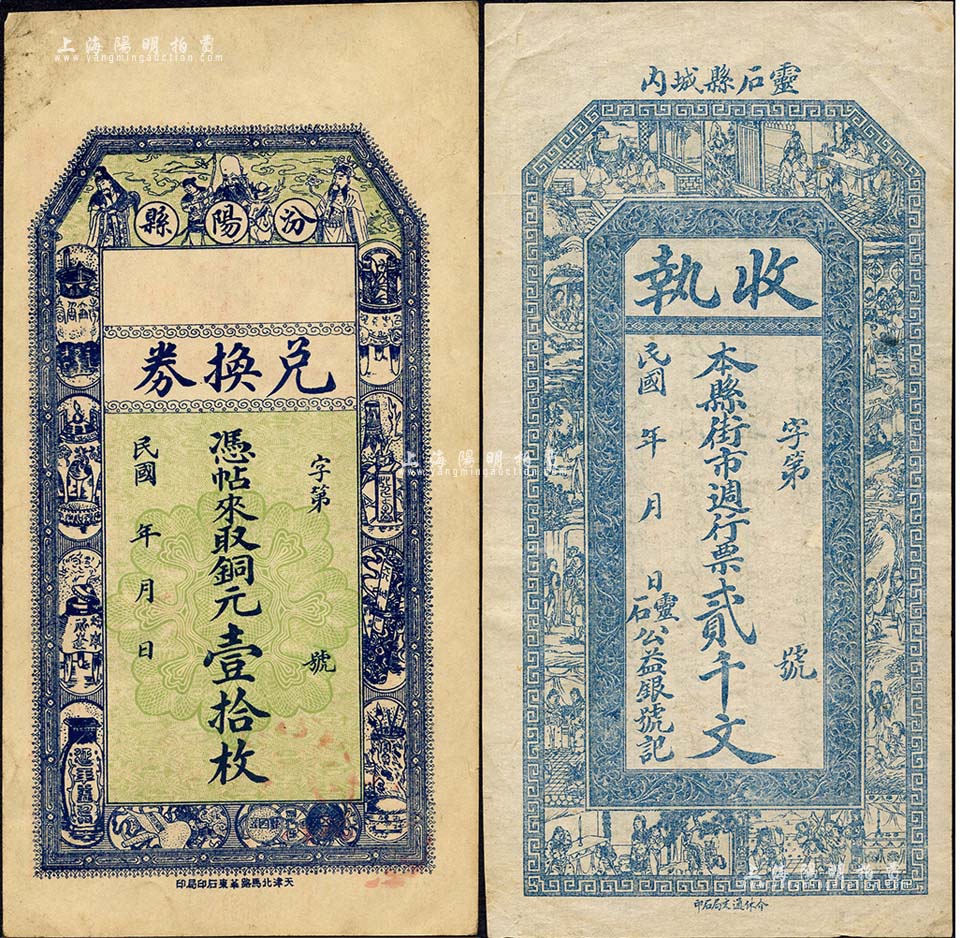 上海陽明拍賣
www.yangmingauction.com
汾陽縣
兌換券
字第 號
憑帖來取銅元壹拾枚
民國 年 月 日
天津北馬路華東石印局印
靈石縣城內
收執
字第 號
本縣街市週行票貳千文
民國 年 月 日
靈石公益銀號記
介休通文局石印
上海陽明拍賣
www.yangmingauction.com
上海陽明拍賣
www.yangmingauction.com